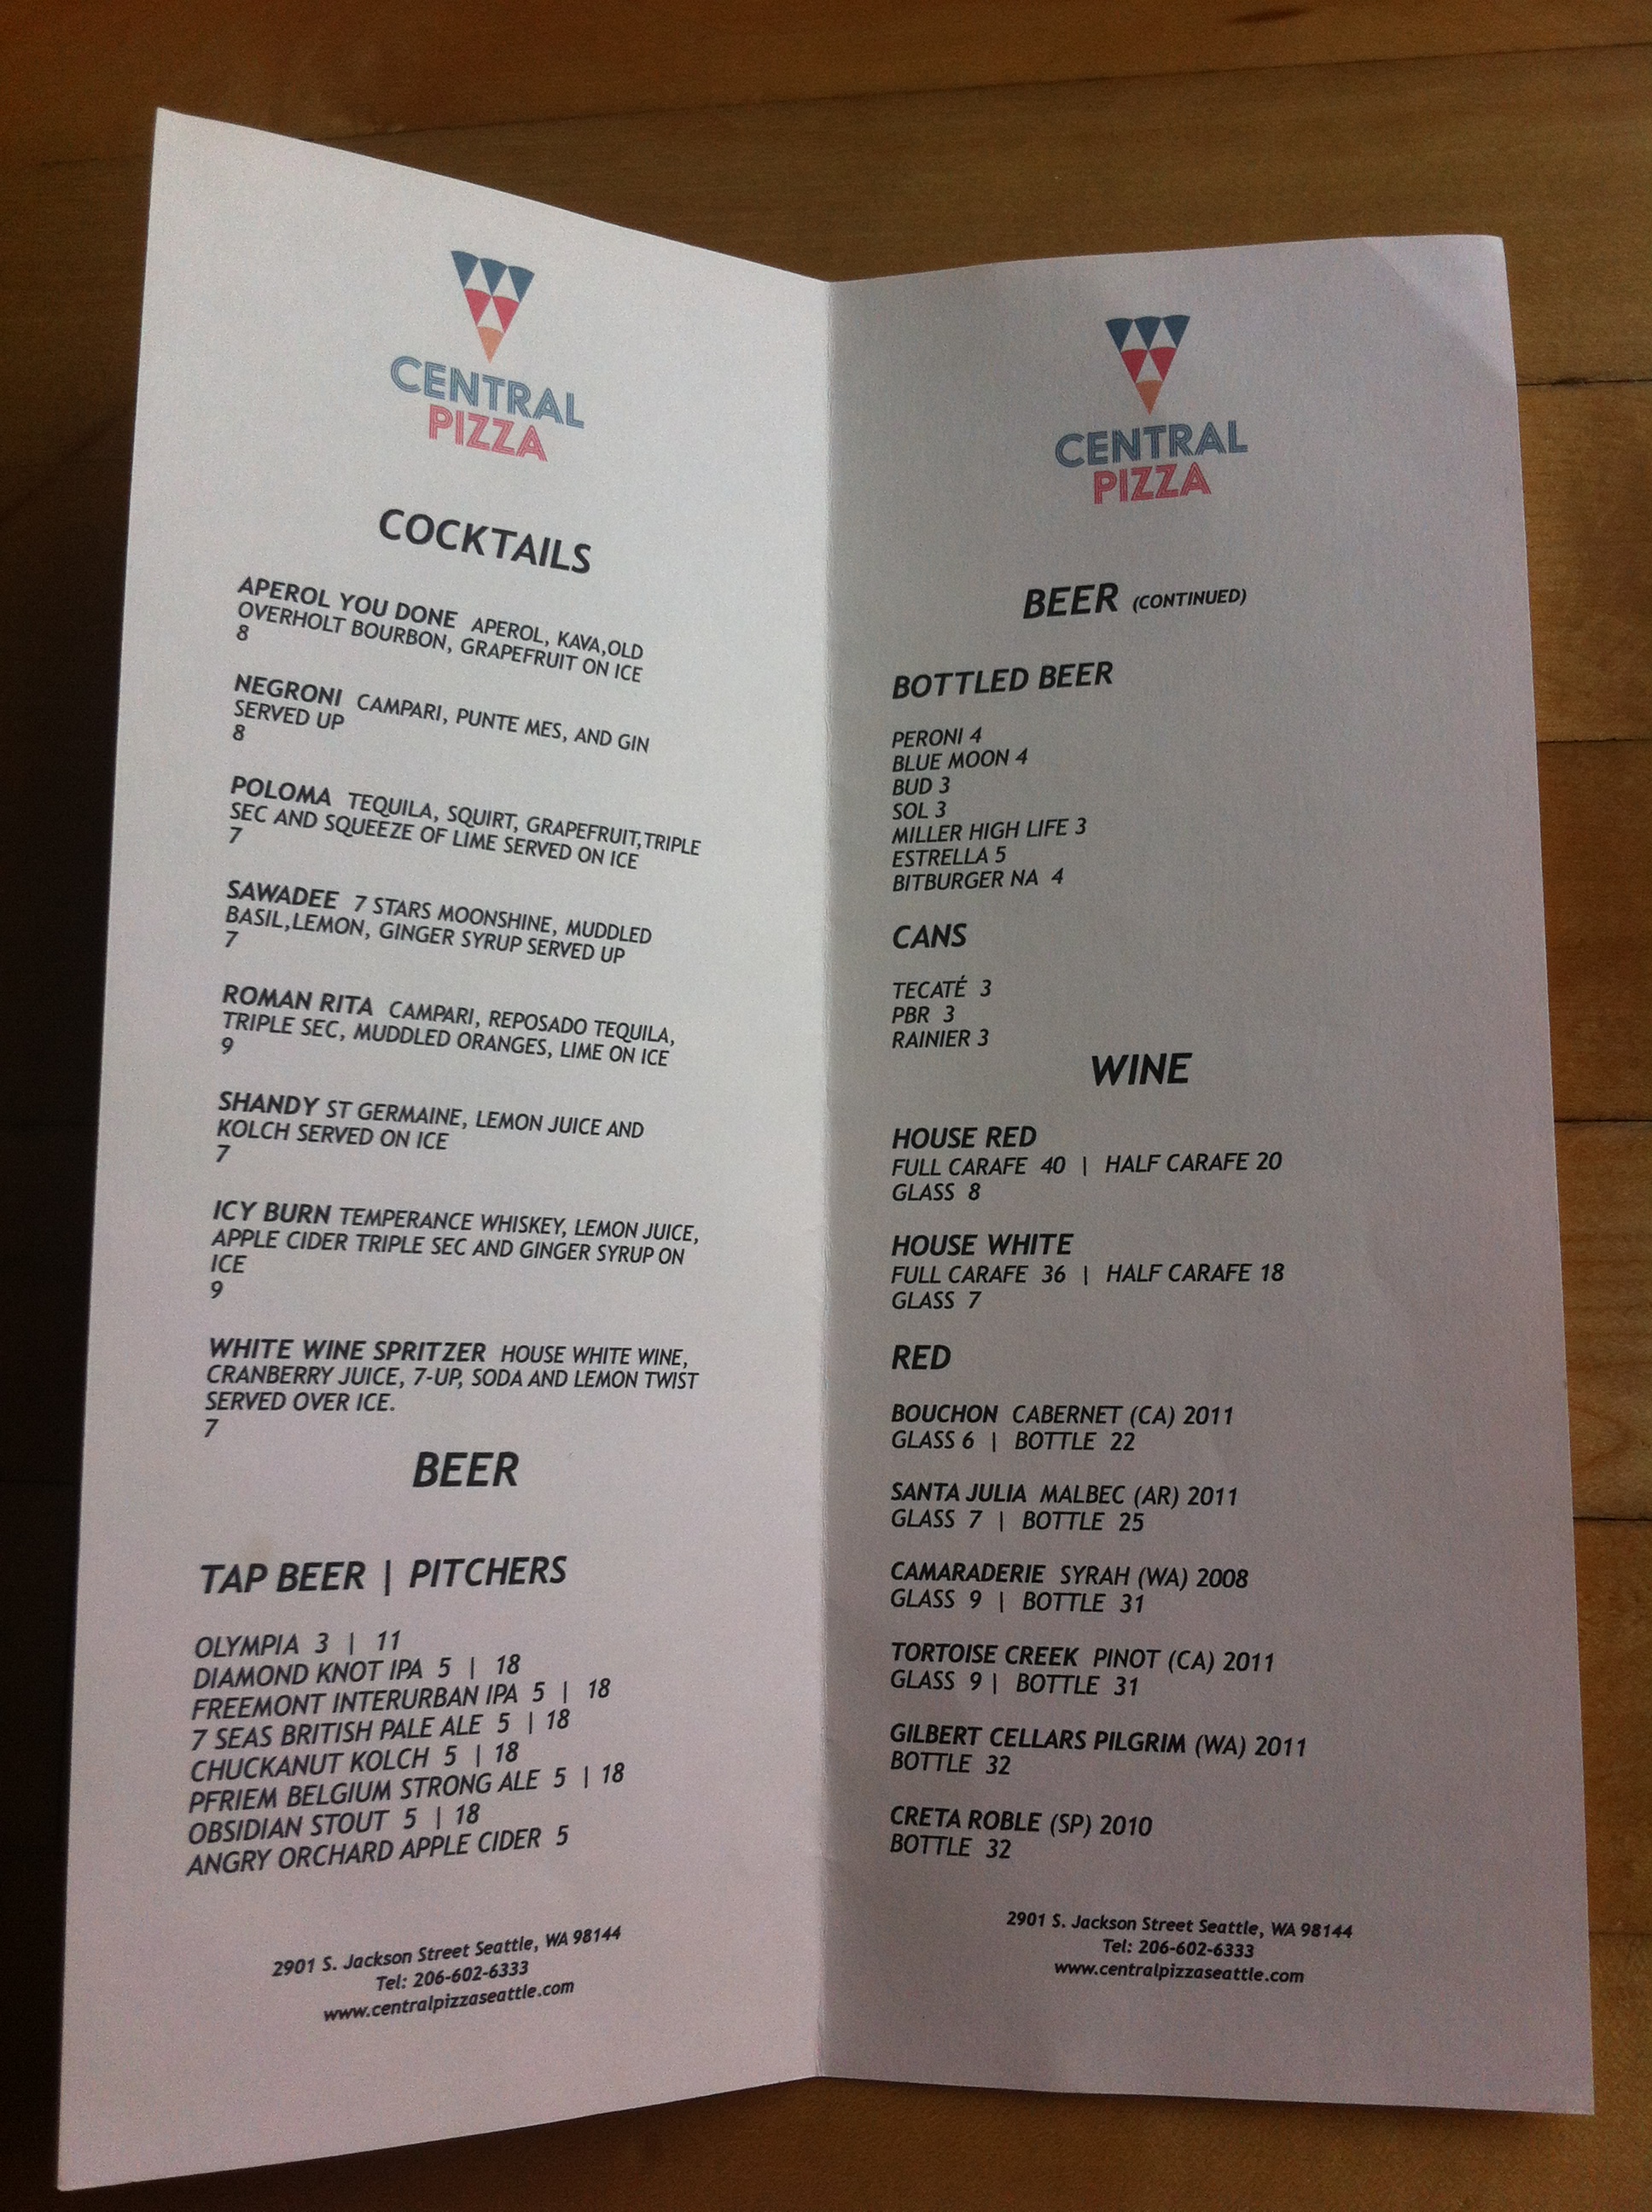 CENTRAL
PIZZA
COCKTAILS
APEROL YOU DONE APEROL, KAVA,OLD
OVERHOLT BOURBON, GRAPEFRUIT ON ICE
8
NEGRONI CAMPARI, PUNTE MES, AND GIN
SERVED UP
8
POLOMA TEQUILA, SQUIRT, GRAPEFRUIT,TRIPLE
SEC AND SQUEEZE OF LIME SERVED ON ICE
7
SAWADEE 7 STARS MOONSHINE, MUDDLED
BASIL,LEMON, GINGER SYRUP SERVED UP
7
ROMAN RITA CAMPARI, REPOSADO TEQUILA,
TRIPLE SEC, MUDDLED ORANGES, LIME ON ICE
9
SHANDY ST GERMAINE, LEMON JUICE AND
KOLCH SERVED ON ICE
7
ICY BURN TEMPERANCE WHISKEY, LEMON JUICE,
APPLE CIDER TRIPLE SEC AND GINGER SYRUP ON
ICE
9
WHITE WINE SPRITZER HOUSE WHITE WINE,
CRANBERRY JUICE, 7-UP, SODA AND LEMON TWIST
SERVED OVER ICE.
7
BEER
TAP BEER | PITCHERS
OLYMPIA 3 | 11
DIAMOND KNOT IPA 5 | 18
FREEMONT INTERURBAN IPA 5 | 18
7 SEAS BRITISH PALE ALE 5 | 18
CHUCKANUT KOLCH 5 | 18
PFRIEM BELGIUM STRONG ALE 5 | 18
OBSIDIAN STOUT 5 | 18
ANGRY ORCHARD APPLE CIDER 5
2901 S. Jackson Street Seattle, WA 98144
Tel: 206-602-6333
www.centralpizzaseattle.com
CENTRAL
PIZZA
BEER (CONTINUED)
BOTTLED BEER
PERONI 4
BLUE MOON 4
BUD 3
SOL 3
MILLER HIGH LIFE 3
ESTRELLA 5
BITBURGER NA 4
CANS
TECATÉ 3
PBR 3
RAINIER 3
WINE
HOUSE RED
FULL CARAFE 40 | HALF CARAFE 20
GLASS 8
HOUSE WHITE
FULL CARAFE 36 | HALF CARAFE 18
GLASS 7
RED
BOUCHON CABERNET (CA) 2011
GLASS 6 | BOTTLE 22
SANTA JULIA MALBEC (AR) 2011
GLASS 7 | BOTTLE 25
CAMARADERIE SYRAH (WA) 2008
GLASS 9 | BOTTLE 31
TORTOISE CREEK PINOT (CA) 2011
GLASS 9 | BOTTLE 31
GILBERT CELLARS PILGRIM (WA) 2011
BOTTLE 32
CRETA ROBLE (SP) 2010
BOTTLE 32
2901 S. Jackson Street Seattle, WA 98144
Tel: 206-602-6333
www.centralpizzaseattle.com